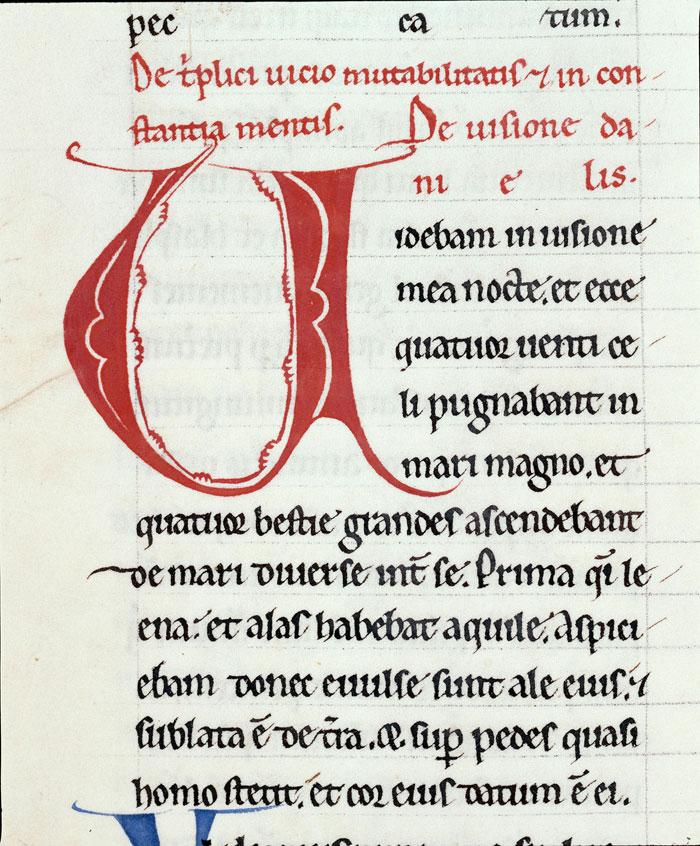 pec ca tum.
De t̄plici uicio mutabilitatis ⁊ in con-
stantia mentis. De uisione da-
ni e lis.
Uidebam in uisione
mea nocte. et ecce
quatuor uenti ce-
li pugnabant in
mari magno. et
quatuor bestie grandes ascendebant
de mari diuerse int̄ se. Prima q̄i le-
ena: et alas habebat aquile. Aspici-
ebam donec euulse sunt ale eius. ⁊
sublata ē de t̄ra. &. suꝑ pedes quasi
homo stetit. et cor eius datum ē ei.